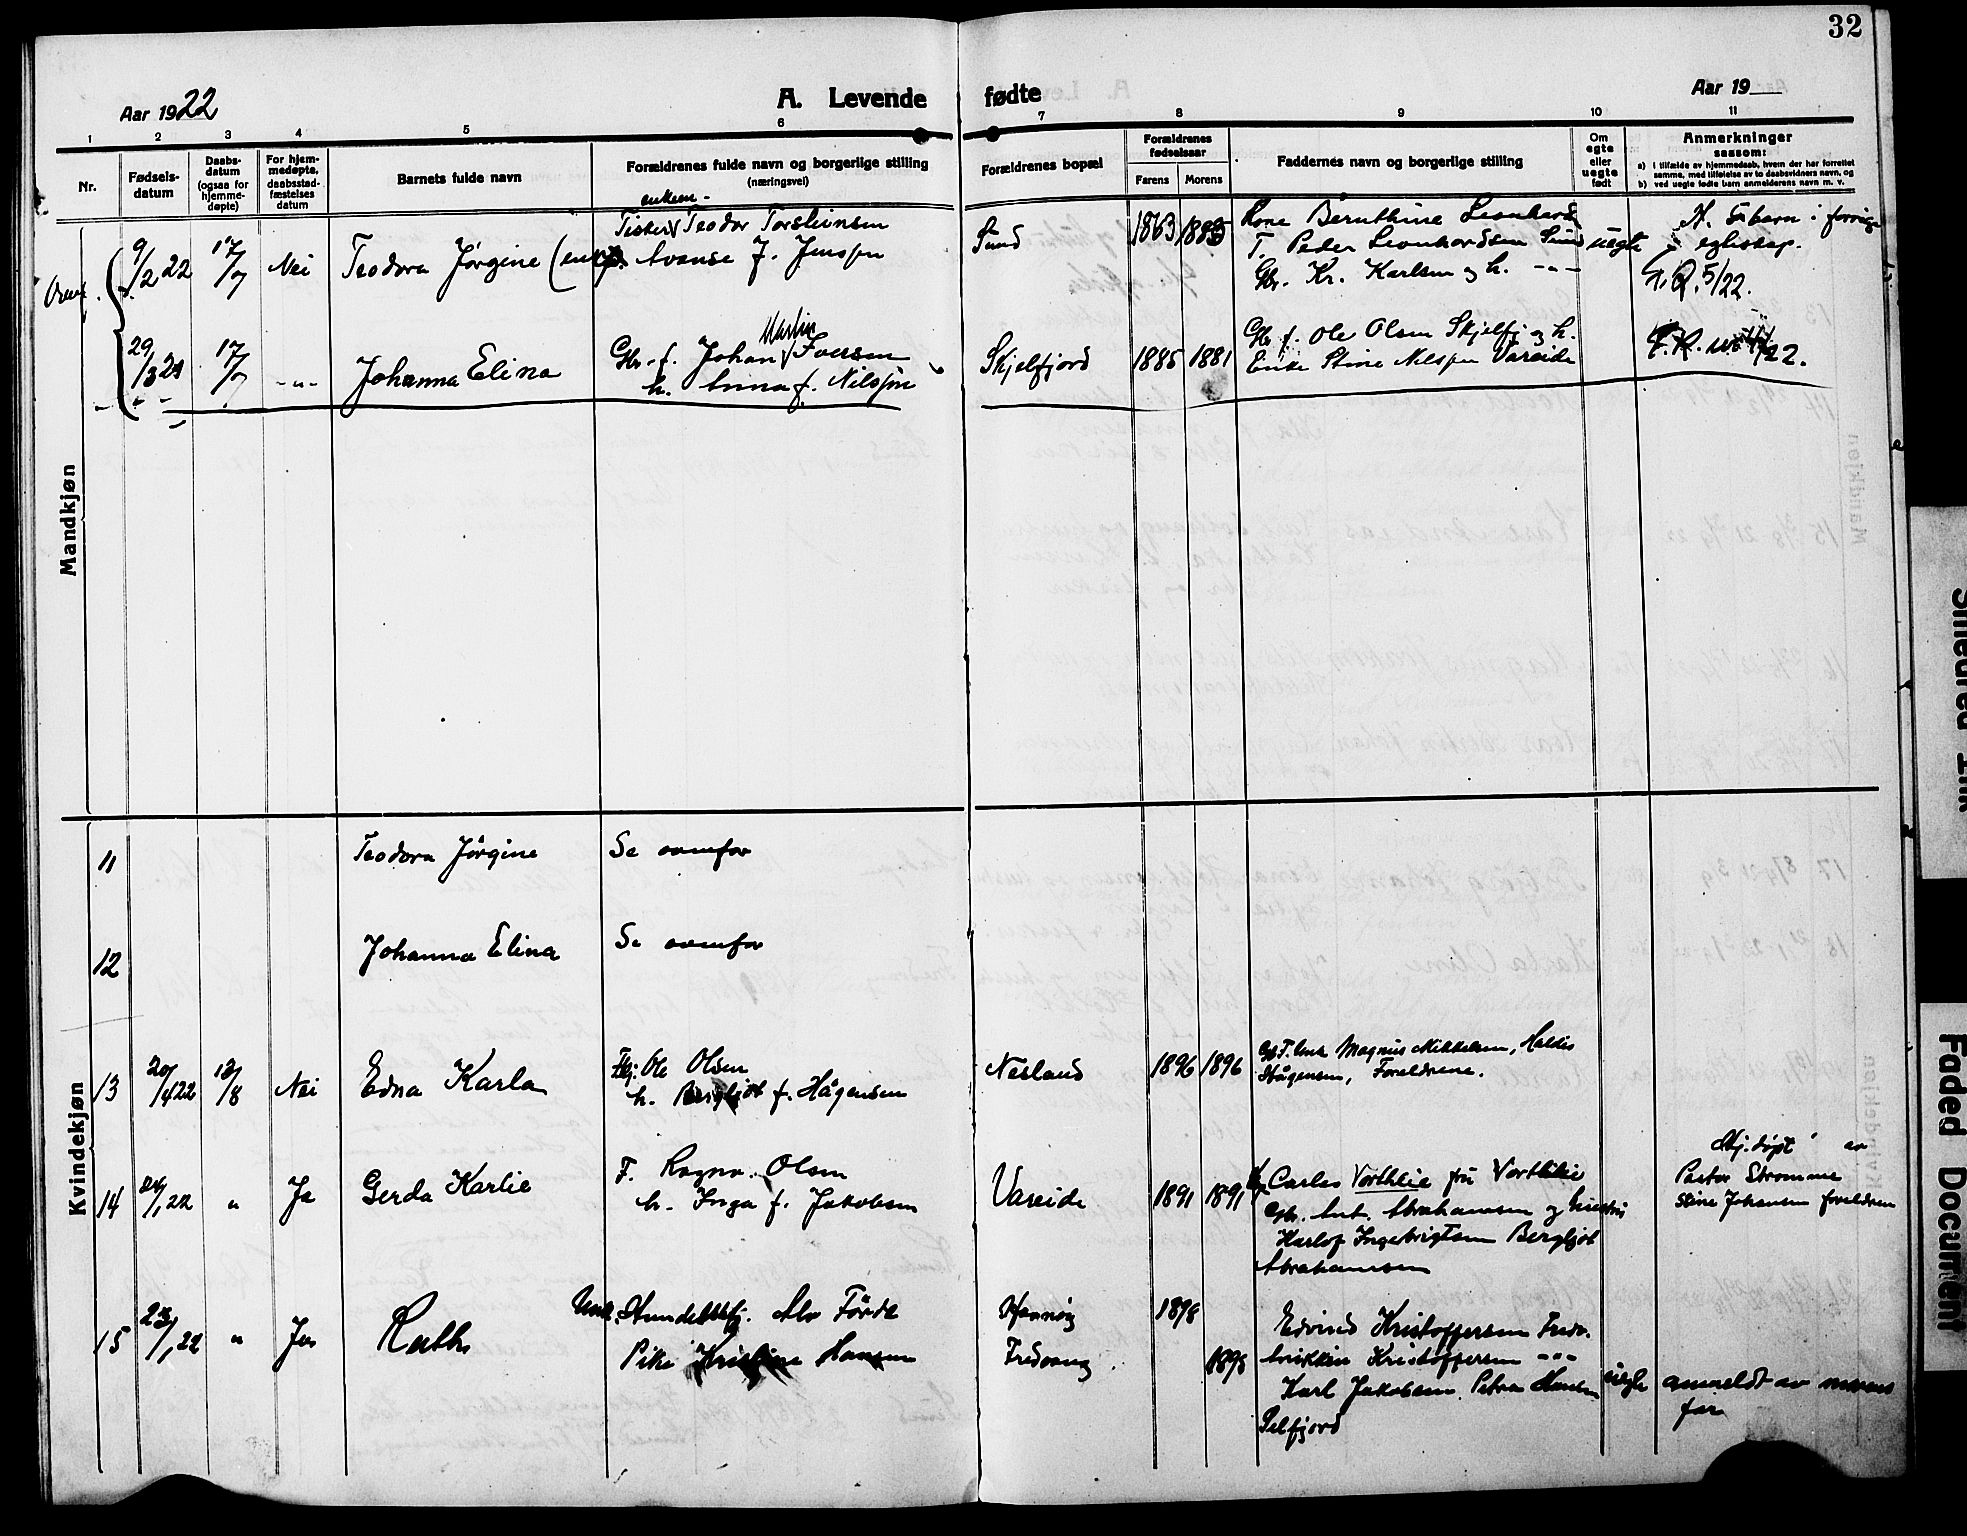 32
Aar 1922
A. Levende fødte
Aar 19
1 2 3 4 5 6 7 8 9 10 11
Nr.
Fødsels-
datum
Daabs-
datum
(ogsaa for
hjemme-
døpte)
For hjem-
medøpte,
daabsstad-
fæstelses
datum
Barnets fulde navn
Forældrenes fulde navn og borgerlige stilling
(næringsvei)
Forældrenes bopæl
Forældrenes
fødselsaar
Farens Morens
Faddernes navn og borgerlige stilling
Om
egte
eller
uegte
født
Anmerkninger
saasom:
a) i tilfælde av hjemmedaab, hvem der har forrettet
samme, med tilføielse av to daabsvidners navn, og
b) ved uegte fødte barn anmelderens navn m. v.
Mandkjøn
9/2 22 17/7 Nei Teodora Jørgine
enkem.
Fisker Teodor Torsteinsen
J. Jenssen
Sund 1863
Kone Bernthine Leonhards
F. Peder Leonhardsen Sund
Gbr. Kr. Karlsen og h. -"-
uegte
barn i forrige
egteskap.
5/22.
29/3 21 17/7 -"- Johanna Elina
Gbr. f. Johan Martin Iversen
h. Anna f. Nilssen
Skjelfjord 1885 1881
Gbr. f. Ole Olsen Skjelfj og h.
Enke Stine Nilssen Vareide
Kvindekjøn
11 Teodora Jørgine Se ovenfor
12 Johanna Elina Se ovenfor
13 20/4 22 13/8 Nei Edna Karla
Ole Olsen
h. Bergljot f. Hågensen
Nesland 1896 1896
Magnus Mikkelsen, Haldis
Hågensen, Foreldrene.
14 24/1 22 " Ja Gerda Karlie
F. Ragnv. Olsen
h. Inga f. Jakobsen
Vareide 1891 1891
Carles Vorthlie fru Vorthlie
Gbr. Ant. Abrahamsen og hustru
Harlof Ingebrigtsen Bergljot
Abrahamsen
Hj. døpt av
Pastor Strømme
Stine Johansen foreldren
15 23/1 22 " Ja Ruth
Alv Førde
Pike Kristine Hansen
Fredvang
1898
1898
Edvind Kristoffersen Fredv.
Kristoffersen -"-
Karl Jakobsen Petra Hansen
Selfjord
uegte
anmeldt av morens
far